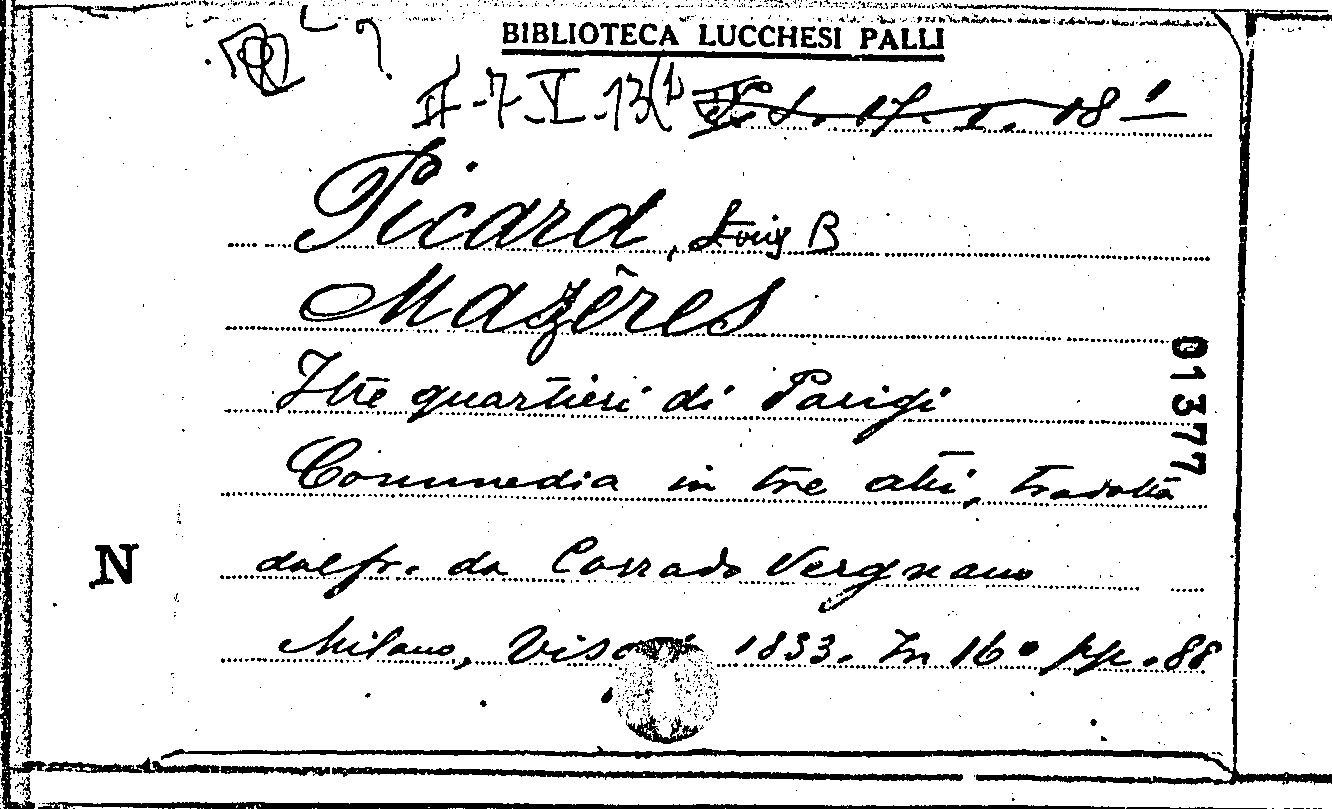 BIBLIOTECA LUCCHESI PALLI
II-7-V-13(1
Picard, Louis B
Mazêres
I tre quartieri di Parigi
Commedia in tre atti, tradotta
dal fr. da Corrado Vergnano
Milano, 1833. In 16° pp. 88
01377
N